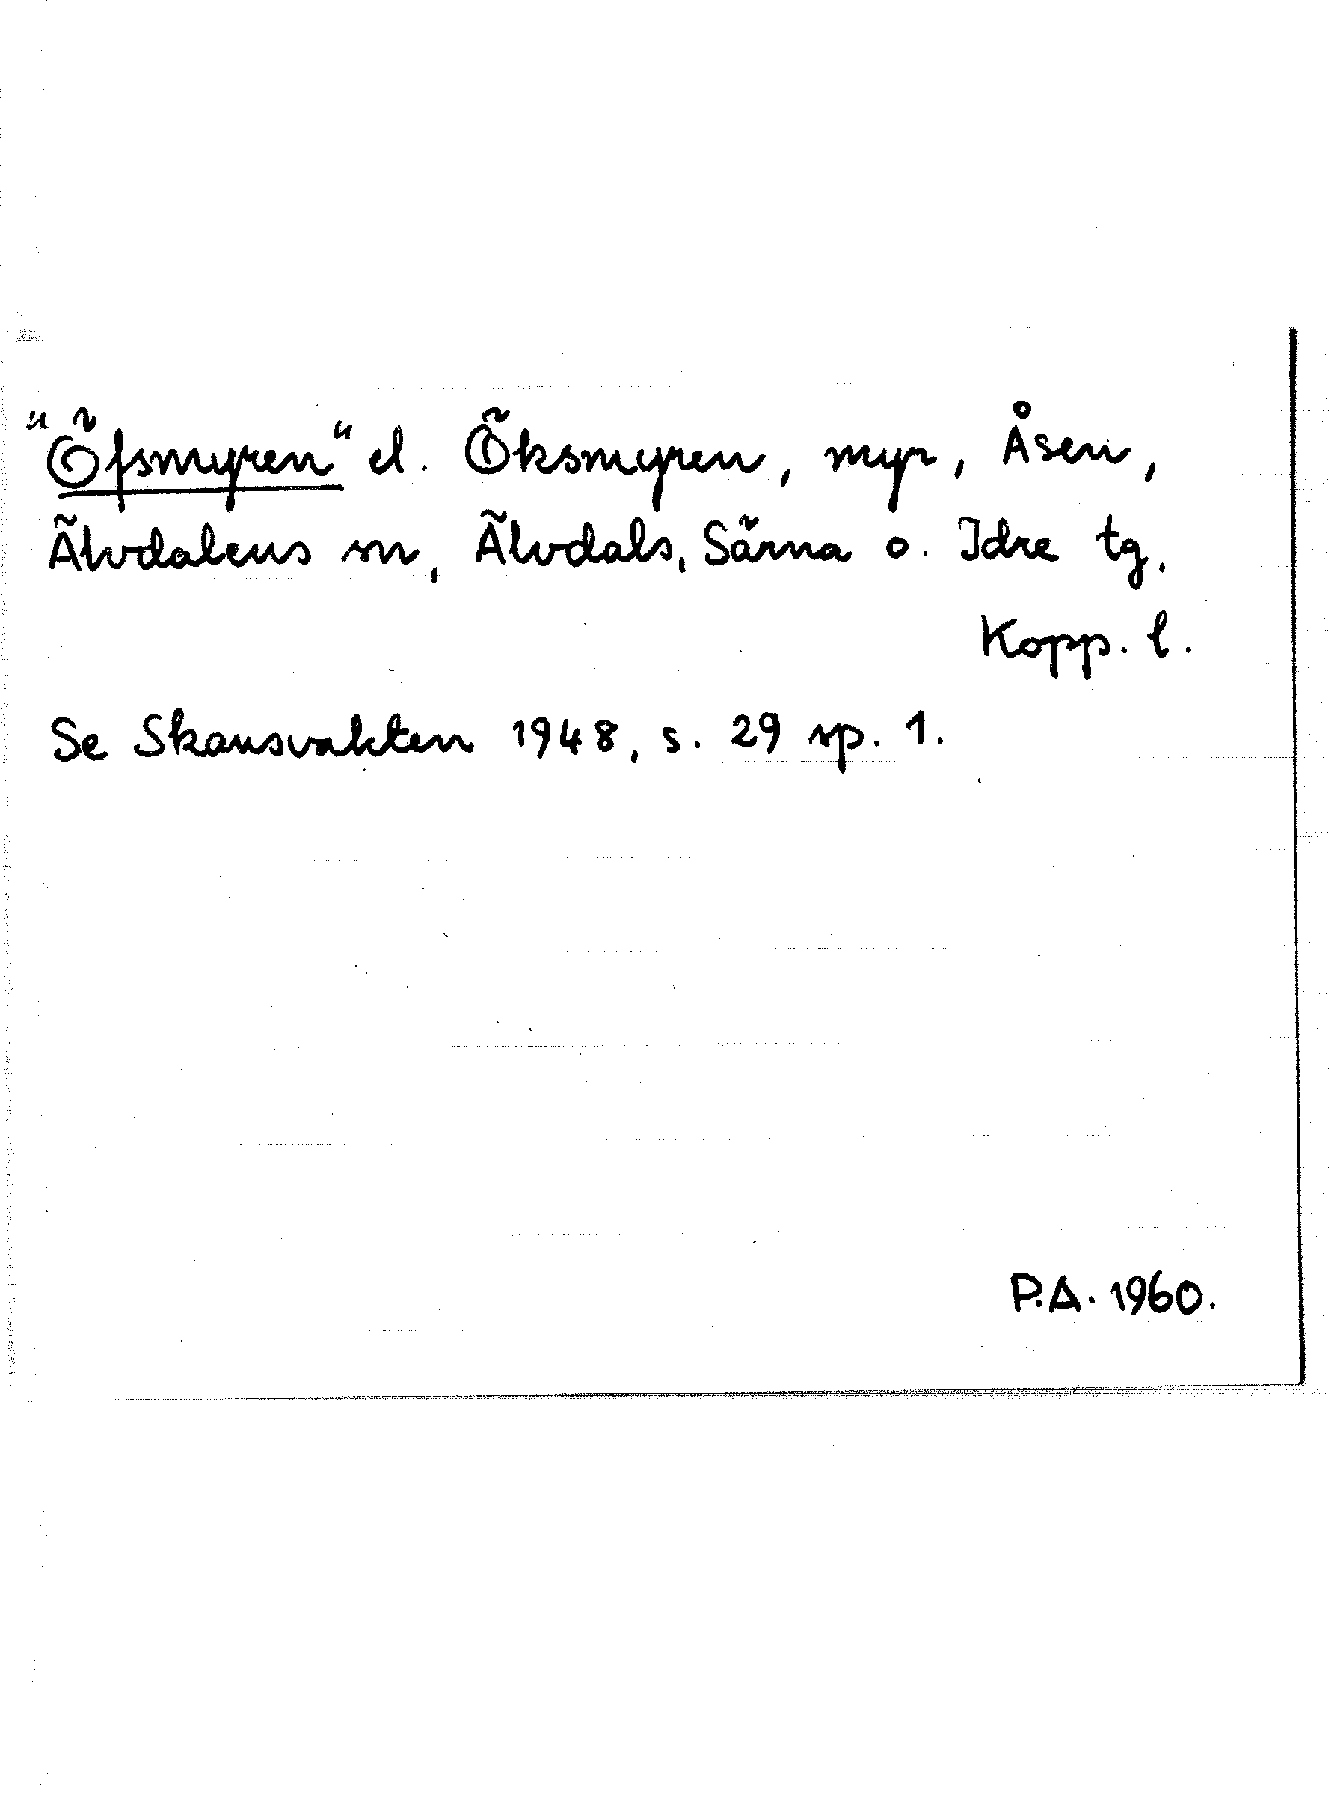 "Öfsmyren" el. Öksmyren, myr, Åsen,
Älvdalens sn, Älvdals, Särna o. Idre tg.
Kopp. l.
Se Skansvakten 1948, s. 29 sp. 1.
P.A. 1960.